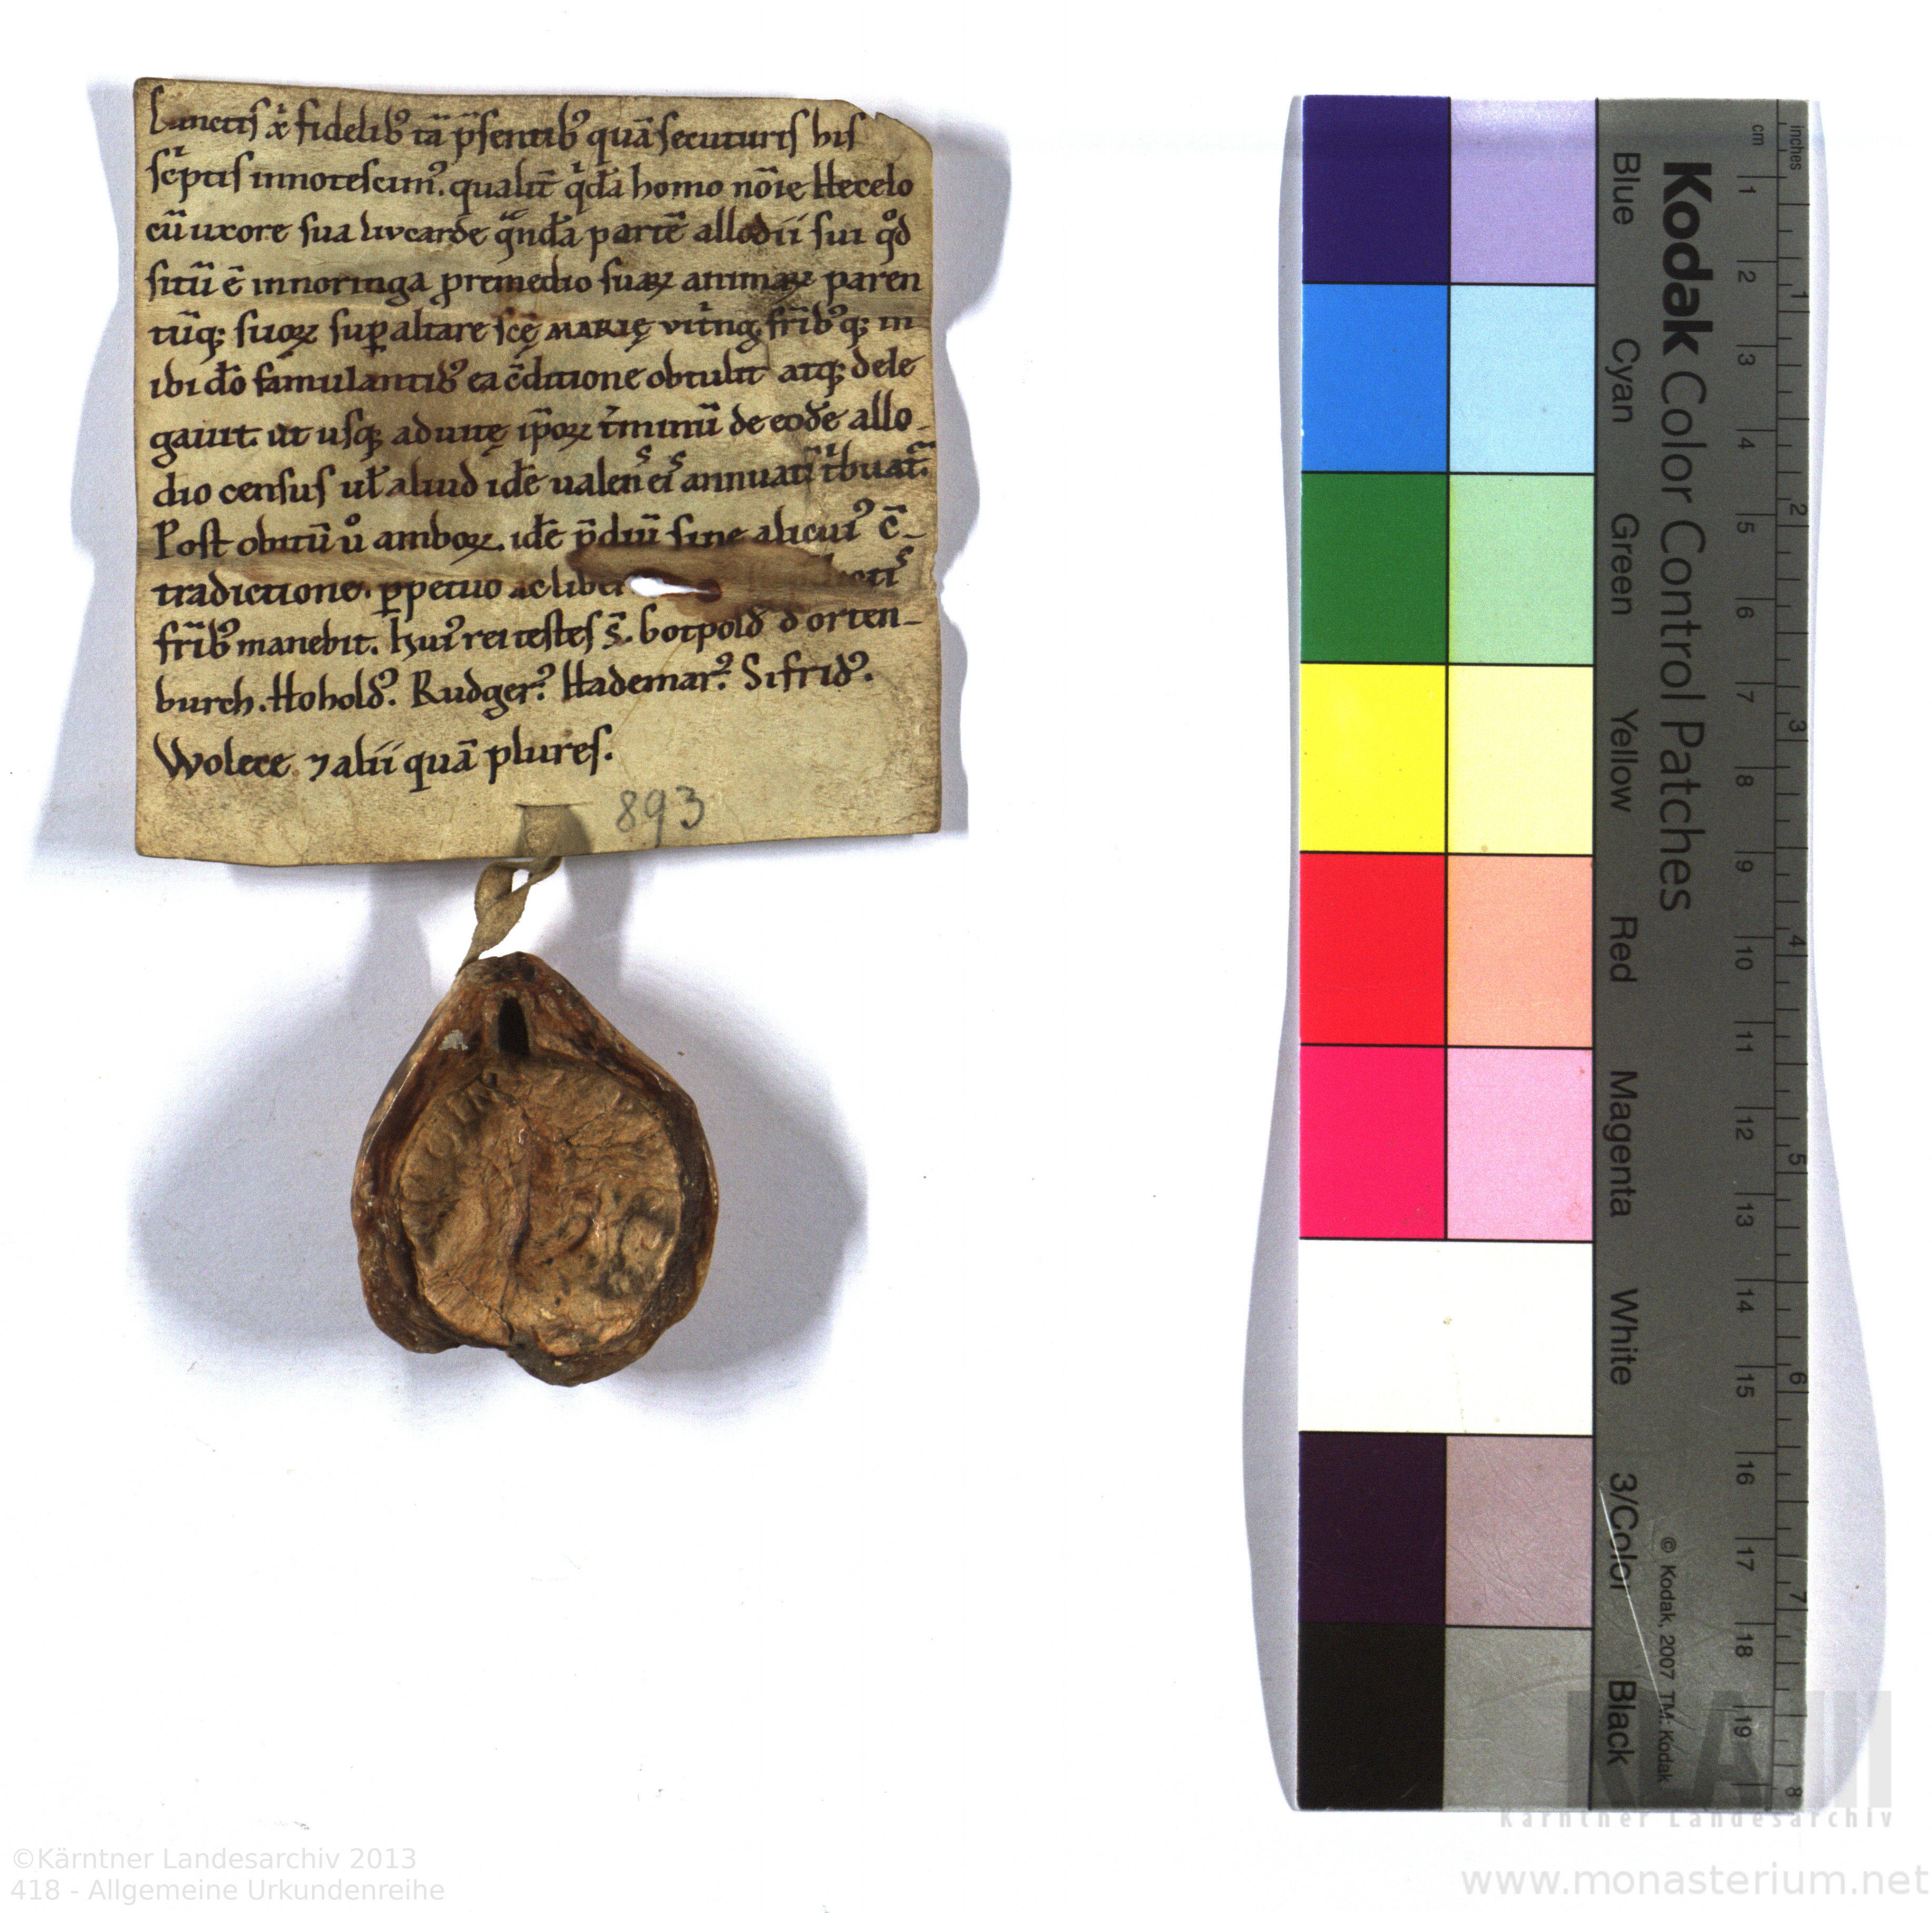 Cunctis xp̄i fidelib᷒ tā p̄sentib᷒ quā secuturis his
sc̍ptis innotescim᷒. qualit̄ q̍dā homo nōie Hecelo
cū uxore sua livcarde q̄ndā partē allodii sui qͦd
sitū ē in noringa p̱ remedio suaꝝ animaꝝ paren
tūq; suoꝝ suꝑ altare scę MARIĘ vitrīg fr̄ib᷒q; in
ibi dō famulantib᷒ ea c̄ditione obtulit atq; dele
gauit. ut usq; ad uitę ip̄oꝝ t̄minū de eodē allo
dio census uł aliud idē ualens eis annuatī t̍buat᷑.
Post obitū uͦ amboꝝ. idē p̄diū sine alicui᷒ c̄-
tradictione. ꝑpetuo ac libe
fr̄ib᷒ manebit. hui᷒ rei testes s̄. botpold d orten-
burch. Hohold᷒. Rudger᷒. Hademar᷒. Sifrid᷒.
Wolece ⁊ alii quā plures.
893
Kodak Color Control Patches
Blue Cyan Green Yellow Red Magenta White 3/Color Black
© Kodak, 2007 TM: Kodak
cm 1 2 3 4 5 6 7 8 9 10 11 12 13 14 15 16 17 18 19
inches 1 2 3 4 5 6 7 8
KLA
Kärntner Landesarchiv
©Kärntner Landesarchiv 2013
418 - Allgemeine Urkundenreihe
www.monasterium.net